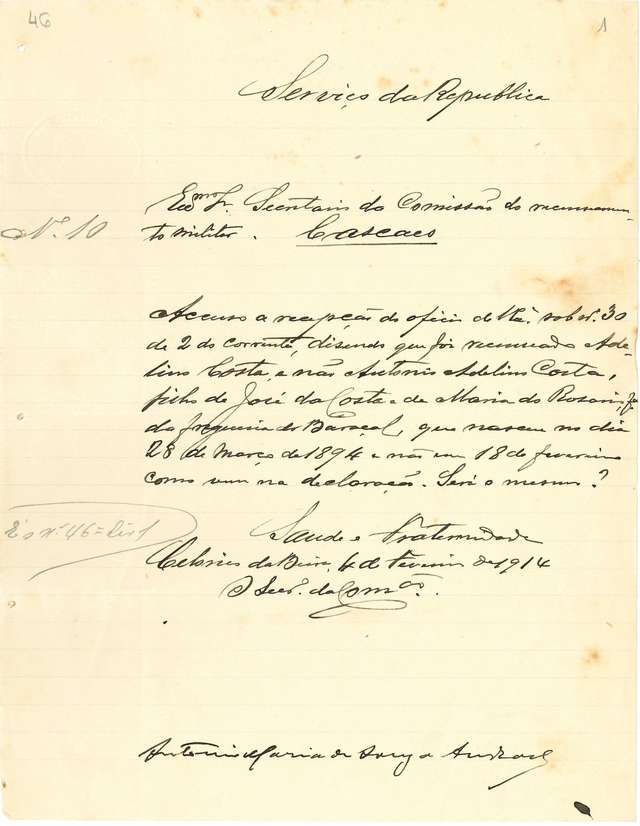 46
1
Serviço da Republica
Exmo Sr. Secretario da Comissão do recenseamen-
Nº 10
to militar. Cascaes
Accuso a recepção do oficio de Va. sob nº. 30
de 2 do corrente, disendo que foi recenseado Ade-
lino Costa, e não Antonio Adelino Costa,
filho de José da Costa e de Maria do Rosario,
da freguesia do Baraçal, que nasceu no dia
28 de Março de 1894 e não em 18 de fevereiro
como vem na declaração. Será o mesmo?
É o nº 46
Saude e Fraternidade
Celorico da Beira, 4 de Fevereiro de 1914
O Secr. da Comão.
Antonio Maria de Souza Andrade